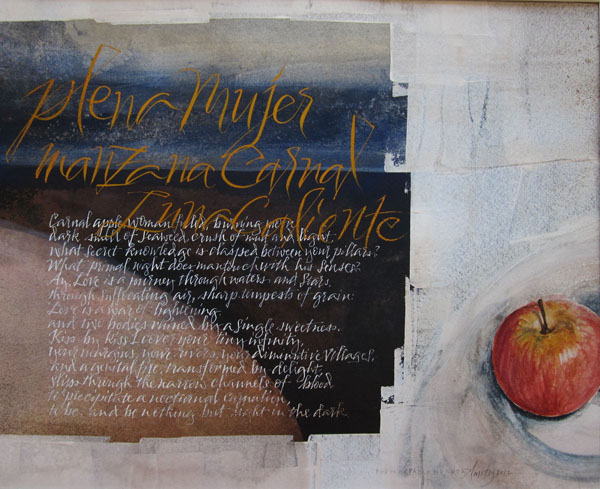 plena Mujer
manzana Carnal
Luna Caliente
Carnal apple, Woman filled, burning moon,
dark smell of Seaweed, crush of mud and light,
what secret knowledge is clasped between your pillars?
What primal night does man touch with his senses?
Ay, Love is a journey through waters and stars,
through suffocating air, sharp tempests of grain:
Love is a war of lightning,
and two bodies ruined by a single sweetness.
Kiss by kiss I cover your tiny infinity,
your margins, your rivers, your diminutive villages,
and a genital fire, transformed by delight,
slips through the narrow channels of blood
to precipitate a nocturnal carnation,
to be, and be nothing but light in the dark.